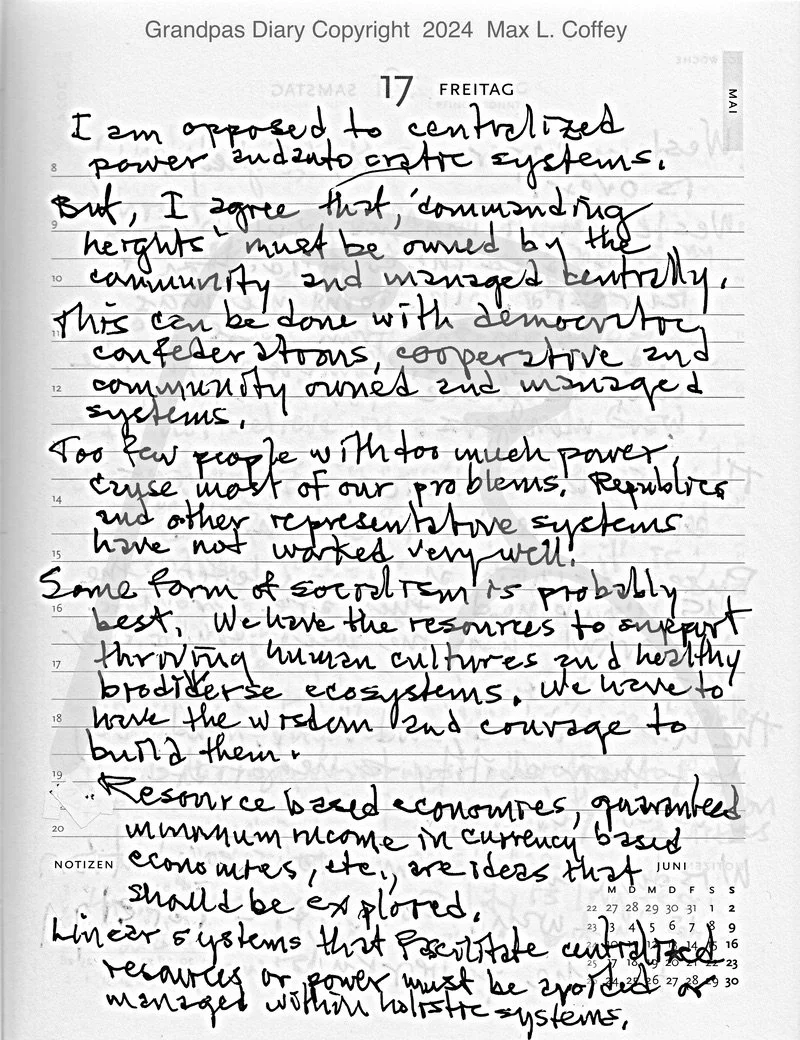 Grandpas Diary Copyright 2024 Max L. Coffey
17 FREITAG
MAI
I am opposed to centralized
8 power and autocratic systems.
But, I agree that, 'commanding
9 heights' must be owned by the
10 community and managed centrally.
This can be done with democratic
11 confederations, cooperative and
12 community owned and managed
systems.
Too few people with too much power,
cause most of our problems. Republics
14 and other representative systems
15 have not worked very well.
Some form of socialism is probably
16 best. We have the resources to support
17 thriving human cultures and healthy
biodiverse ecosystems. We have to
18 have the wisdom and courage to
build them.
19 Resource based economies, guaranteed
20 minimum income in currency based
NOTIZEN economies, etc., are ideas that JUNI
should be explored.
M D M D F S S
22 27 28 29 30 31 1 2
23 3 4 5 6 7 8 9
Linear systems that facilitate centralized
resources or power must be avoided or
managed within holistic systems.
16
23
24 25 26 27 28 29 30